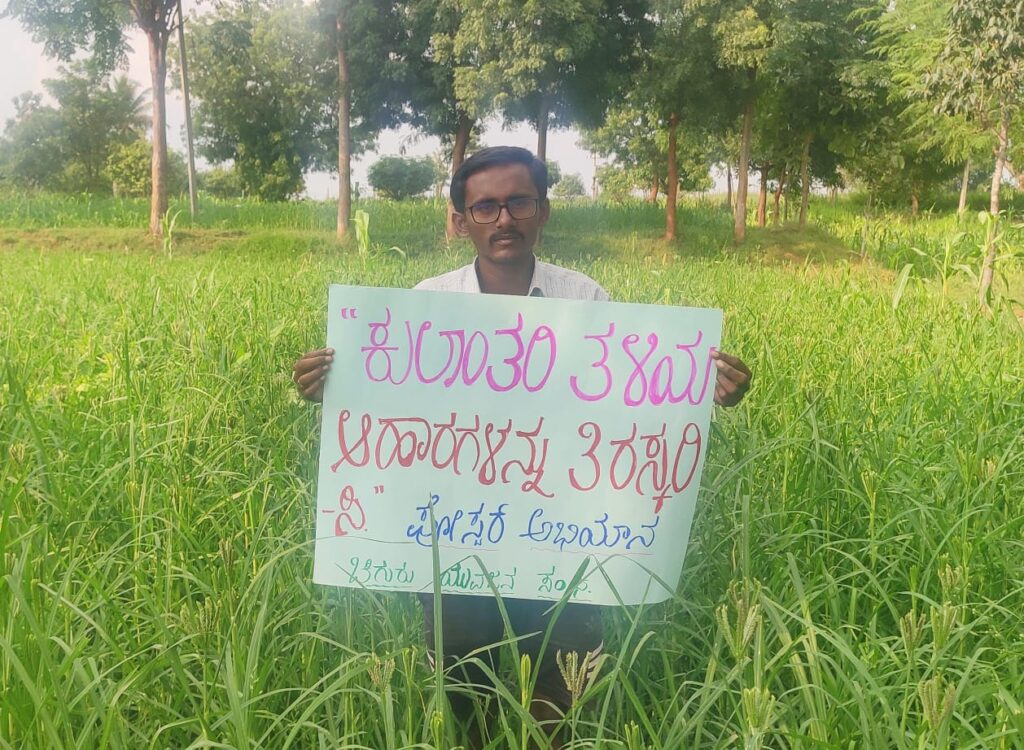 "ಕುಲಾಂತರಿ ತಳಿಯ
ಆಹಾರಗಳನ್ನು ತಿರಸ್ಕರಿ
-ಸಿ." ಪೋಸ್ಟರ್ ಅಭಿಯಾನ
ಬೆಗುರು ಯುವಜನ ಸಂಘ.